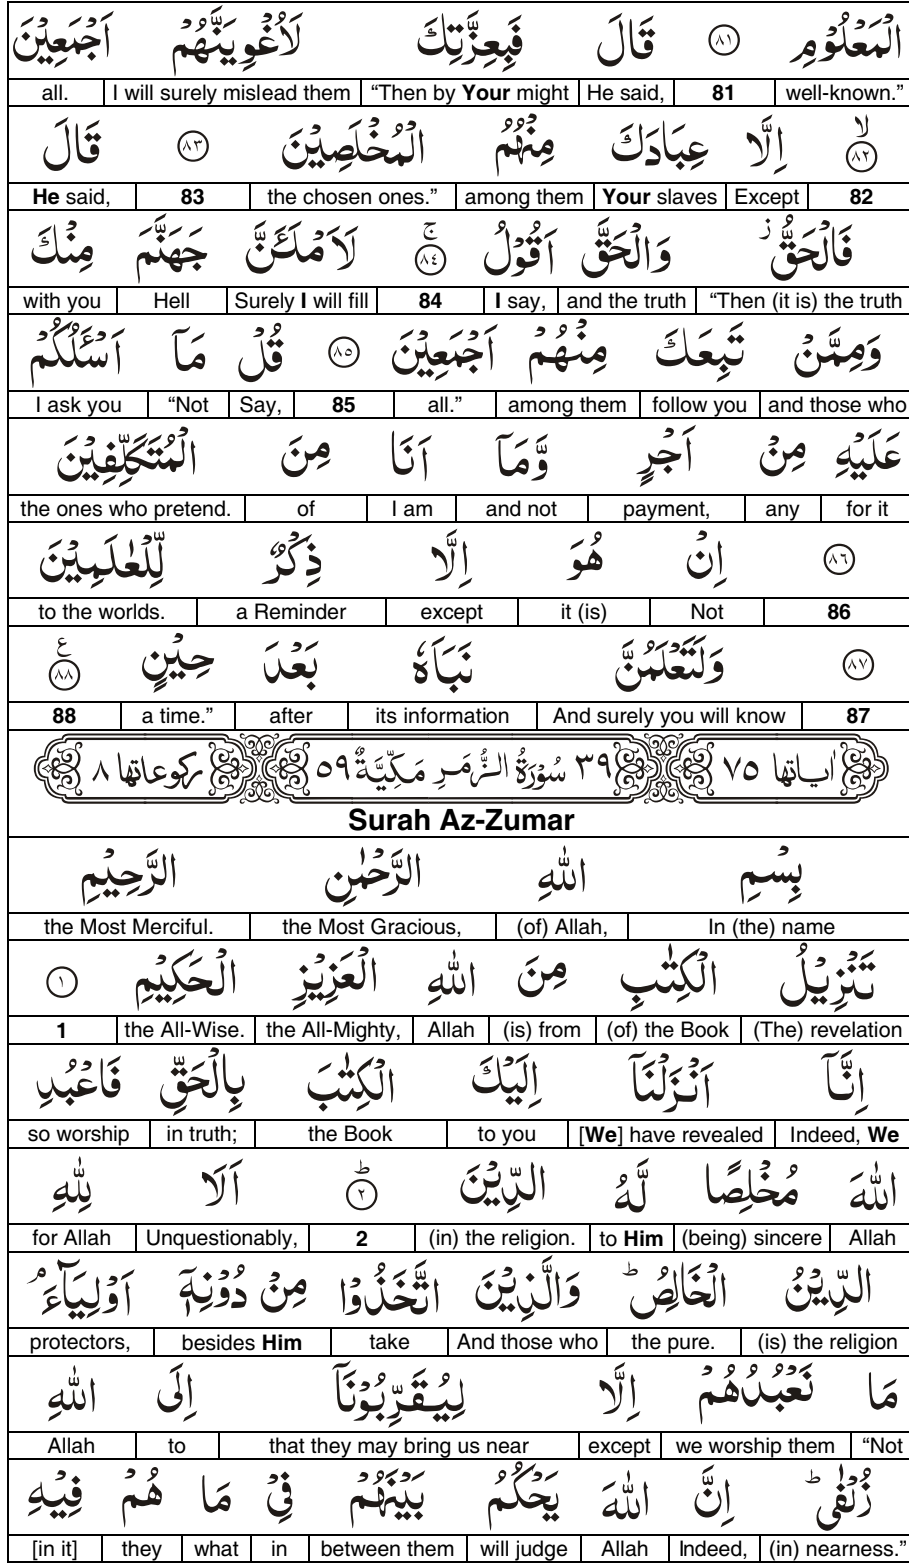 الْمَعْلُوْمِ ﴿٨١﴾ قَالَ فَبِعِزَّتِكَ لَاُغْوِيَنَّهُمْ اَجْمَعِيْنَ
well-known.” 81 He said, “Then by Your might I will surely mislead them all.
﴿٨٢﴾ۙ اِلَّا عِبَادَكَ مِنْهُمُ الْمُخْلَصِيْنَ ﴿٨٣﴾ قَالَ
82 Except Your slaves among them the chosen ones.” 83 He said,
فَالْحَقُّ ز وَالْحَقَّ اَقُوْلُ ﴿٨٤﴾ۚ لَاَمْلَـَٔنَّ جَهَنَّمَ مِنْكَ
“Then (it is) the truth and the truth I say, 84 Surely I will fill Hell with you
وَمِمَّنْ تَبِعَكَ مِنْهُمْ اَجْمَعِيْنَ ﴿٨٥﴾ قُلْ مَآ اَسْـَٔلُكُمْ
and those who follow you among them all.” 85 Say, “Not I ask you
عَلَيْهِ مِنْ اَجْرٍ وَّمَآ اَنَا مِنَ الْمُتَكَلِّفِيْنَ
for it any payment, and not I am of the ones who pretend.
﴿٨٦﴾ اِنْ هُوَ اِلَّا ذِكْرٌ لِّلْعٰلَمِيْنَ
86 Not it (is) except a Reminder to the worlds.
﴿٨٧﴾ وَلَتَعْلَمُنَّ نَبَاَهٗ بَعْدَ حِيْنٍ ﴿٨٨﴾ ع
87 And surely you will know its information after a time.” 88
اٰياتها ٧٥ ٣٩ سُوْرَةُ الزُّمَرِ مَكِّيَّةٌ ٥٩ ركوعاتها ٨
Surah Az-Zumar
بِسْمِ اللهِ الرَّحْمٰنِ الرَّحِيْمِ
In (the) name (of) Allah, the Most Gracious, the Most Merciful.
تَنْزِيْلُ الْكِتٰبِ مِنَ اللهِ الْعَزِيْزِ الْحَكِيْمِ ﴿١﴾
(The) revelation (of) the Book (is) from Allah the All-Mighty, the All-Wise. 1
اِنَّآ اَنْزَلْنَآ اِلَيْكَ الْكِتٰبَ بِالْحَقِّ فَاعْبُدِ
Indeed, We [We] have revealed to you the Book in truth; so worship
اللهَ مُخْلِصًا لَّهُ الدِّيْنَ ﴿٢﴾ؕ اَلَا لِلّٰهِ
Allah (being) sincere to Him (in) the religion. 2 Unquestionably, for Allah
الدِّيْنُ الْخَالِصُ ؕ وَالَّذِيْنَ اتَّخَذُوْا مِنْ دُوْنِهٖٓ اَوْلِيَآءَ ۘ
(is) the religion the pure. And those who take besides Him protectors,
مَا نَعْبُدُهُمْ اِلَّا لِيُقَرِّبُوْنَآ اِلَى اللهِ
“Not we worship them except that they may bring us near to Allah
زُلْفٰى ؕ اِنَّ اللهَ يَحْكُمُ بَيْنَهُمْ فِيْ مَا هُمْ فِيْهِ
(in) nearness.” Indeed, Allah will judge between them in what they [in it]